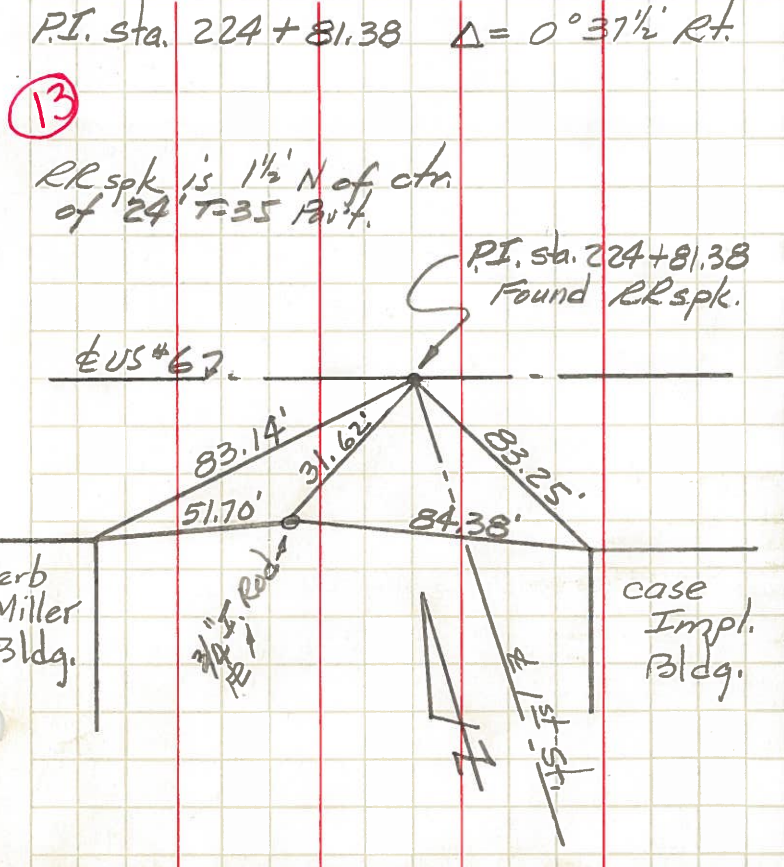 P.I. sta. 224+81.38 Δ= 0°37½' Rt.
13
RRspk is 1½' N of ctr.
of 24' T=35 Pav't.
P.I. sta. 224+81.38
Found RRspk.
℄ US #6
83.14'
31.62'
83.25'
51.70'
84.38'
erb
Miller
Bldg.
3/4" I. Rod
case
Impl.
Bldg.
℄ 1st St.
N